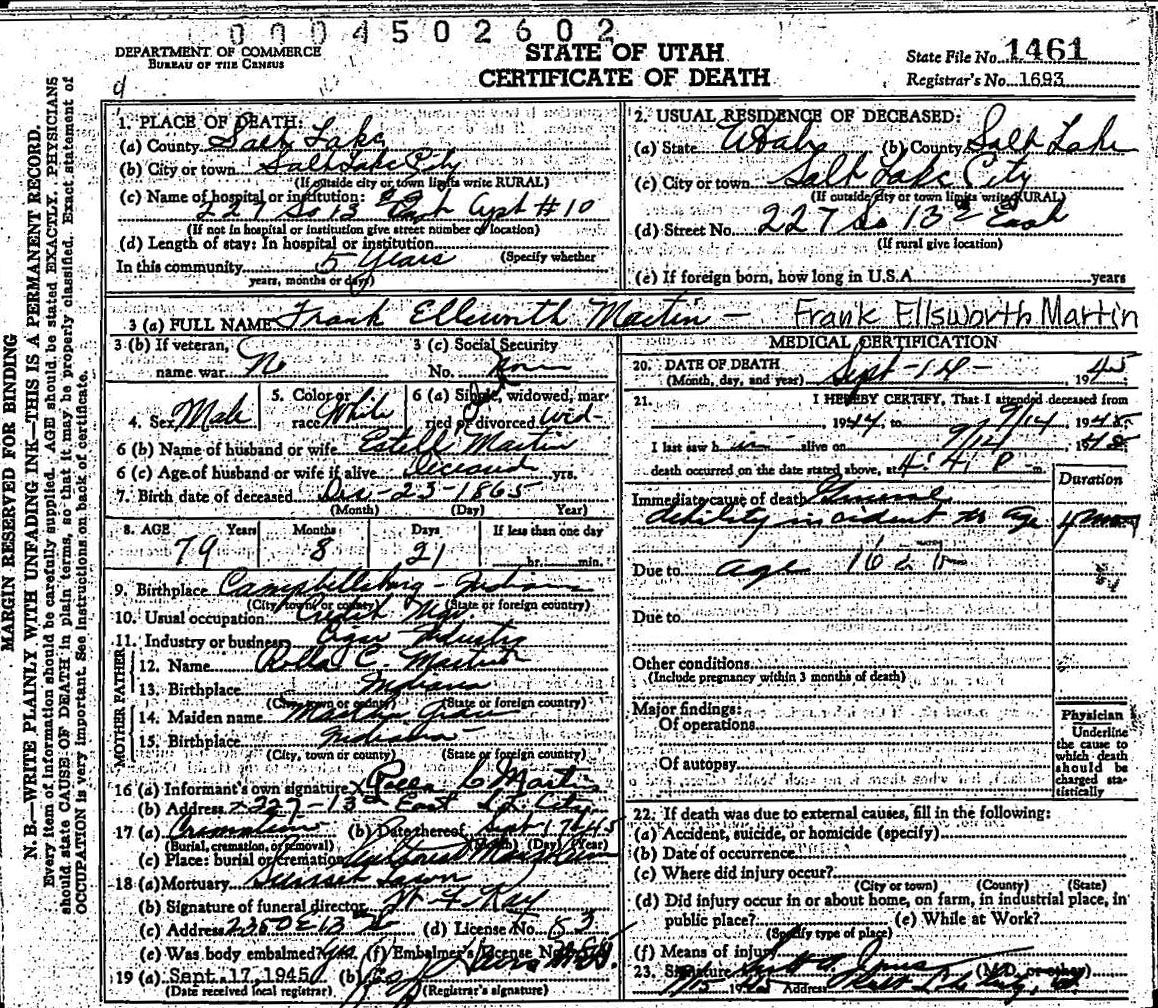 0004502602
DEPARTMENT OF COMMERCE
BUREAU OF THE CENSUS
STATE OF UTAH
CERTIFICATE OF DEATH
State File No. 1461
Registrar's No. 1693
MARGIN RESERVED FOR BINDING
N. B.—WRITE PLAINLY WITH UNFADING INK—THIS IS A PERMANENT RECORD.
Every item of information should be carefully supplied. AGE should be stated EXACTLY. PHYSICIANS
should state CAUSE OF DEATH in plain terms, so that it may be properly classified. Exact statement of
OCCUPATION is very important. See instructions on back of certificate.
1. PLACE OF DEATH:
(a) County Salt Lake
(b) City or town Salt Lake City
(If outside city or town limits write RURAL)
(c) Name of hospital or institution:
227 So 13 East Apt #10
(If not in hospital or institution give street number or location)
(d) Length of stay: In hospital or institution
(Specify whether
In this community 5 Years
years, months or days)
2. USUAL RESIDENCE OF DECEASED:
(a) State Utah (b) County Salt Lake
(c) City or town Salt Lake City
(If outside city or town limits write RURAL)
(d) Street No. 227 So 13 East
(If rural give location)
(e) If foreign born, how long in U.S.A. years
3 (a) FULL NAME Frank Ellsworth Martin - Frank Ellsworth Martin
3 (b) If veteran, name war No
3 (c) Social Security No. None
4. Sex Male
5. Color or race White
6 (a) Single, widowed, married or divorced Wid-
6 (b) Name of husband or wife Estell Martin
6 (c) Age of husband or wife if alive Deceased yrs.
7. Birth date of deceased Dec-23-1865
(Month) (Day) Year)
8. AGE Years Months Days If less than one day
79 8 21 hr. min.
9. Birthplace Campbellsburg - Indiana
(City, town, or county) (State or foreign country)
10. Usual occupation Credit Mgr
11. Industry or business Cigar Industry
FATHER
12. Name Rolla C. Martin
13. Birthplace Indiana
(City, town or county) (State or foreign country)
MOTHER
14. Maiden name
15. Birthplace Indiana
(City, town or county) (State or foreign country)
16 (a) Informant's own signature x Rolla C Martin
(b) Address 227-13 East S.L. City
17 (a) Cremation (b) Date thereof Sept 17 45
(Burial, cremation, or removal) (Month) (Day) (Year)
(c) Place: burial or cremation
18 (a) Mortuary Sunset Lawn
(b) Signature of funeral director Kay
(c) Address 2350 E 13 (d) License No. 53
(e) Was body embalmed? Yes (f) Embalmer's License No.
19 (a) Sept. 17, 1945 (b)
(Date received local registrar) (Registrar's signature)
MEDICAL CERTIFICATION
20. DATE OF DEATH
(Month, day, and year) Sept-14- 1945
21. I HEREBY CERTIFY, That I attended deceased from
1944 to 9/14 1945
I last saw him alive on 9/14, 1945
death occurred on the date stated above, at 4:41 P m.
Duration
Immediate cause of death General
debility incident to age 4 mos
Due to age
Due to
Other conditions
(Include pregnancy within 3 months of death)
Major findings:
Of operations
Of autopsy
Physician
Underline
the cause to
which death
should be
charged sta-
tistically
22. If death was due to external causes, fill in the following:
(a) Accident, suicide, or homicide (specify)
(b) Date of occurrence
(c) Where did injury occur?
(City or town) (County) (State)
(d) Did injury occur in or about home, on farm, in industrial place, in
public place? (e) While at Work?
(Specify type of place)
(f) Means of injury
23. Signature (M.D. or other)
Address Salt Lake City, U